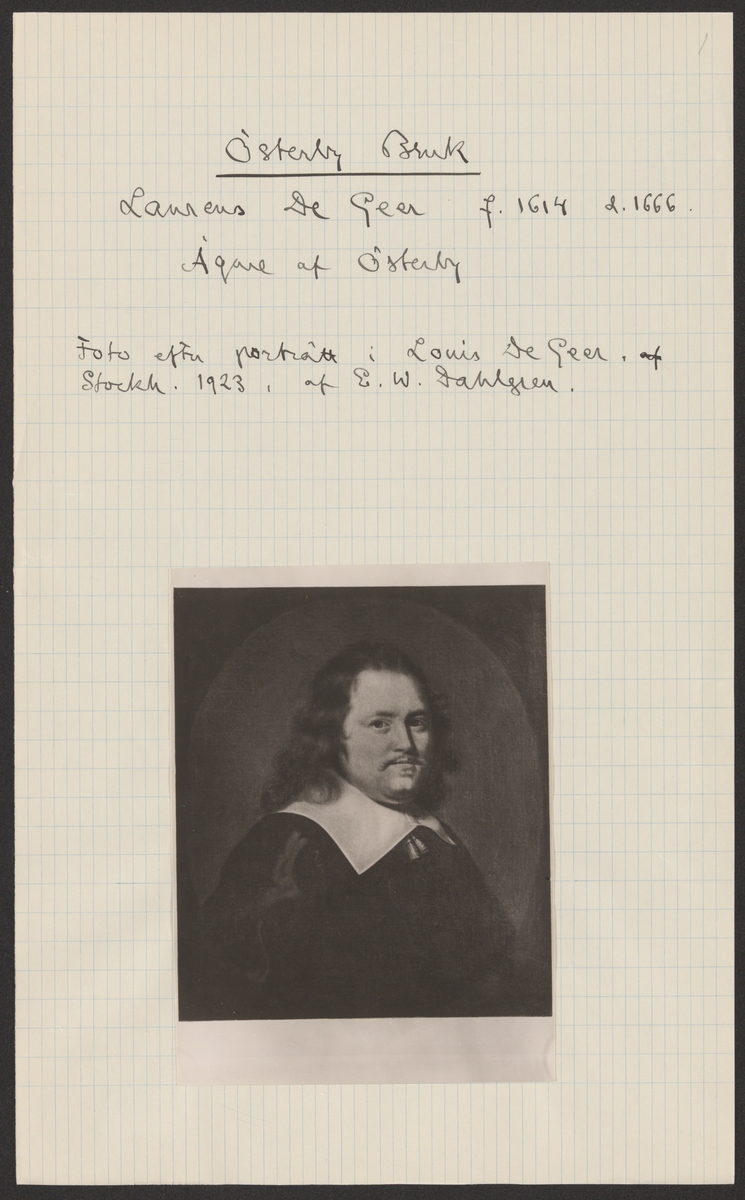 Österby Bruk
Laurens De Geer f. 1614 d. 1666.
Ägare af Österby
Foto efter porträtt i Louis De Geer, af
Stockh. 1923, af E. W. Dahlgren.